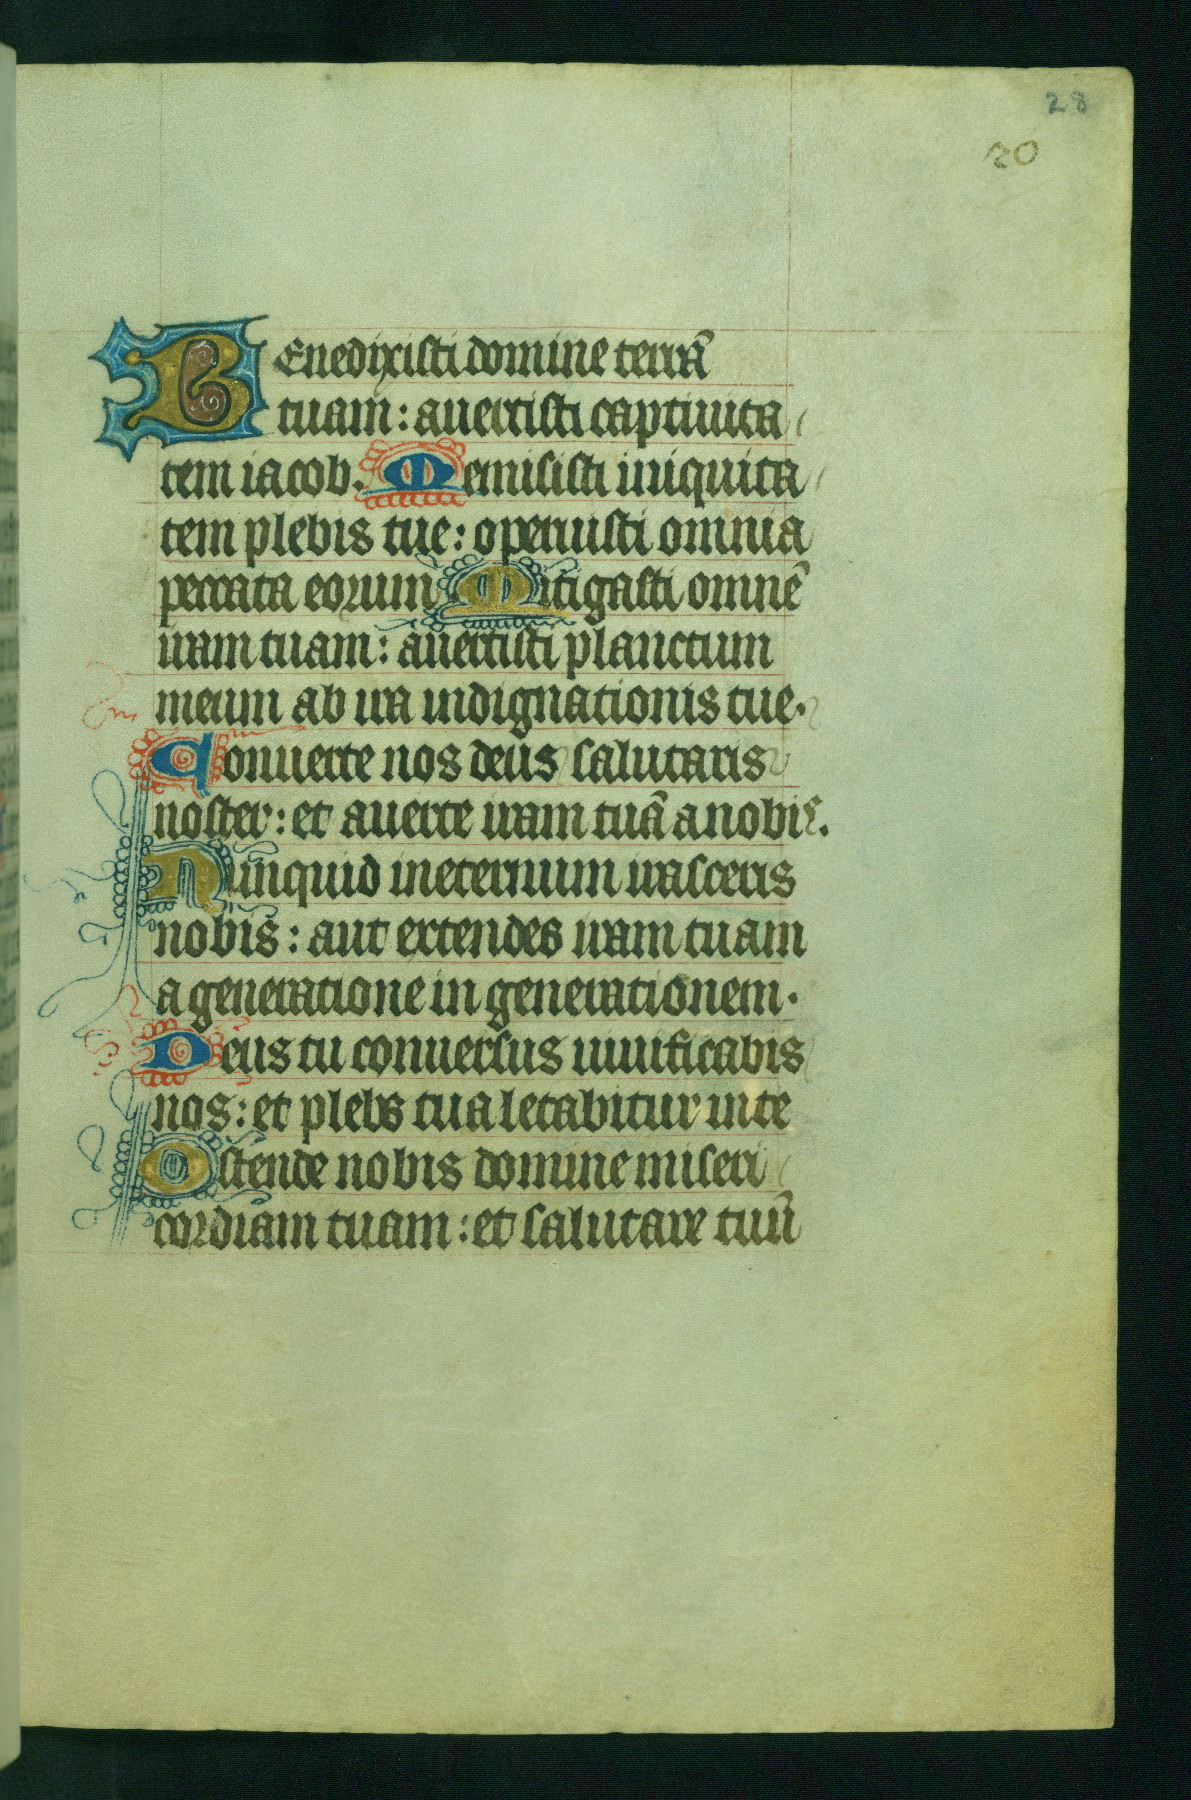 28
20
Benedixisti domine terrā
tuam: auertisti captiuita
tem iacob. Memisisti iniquita
tem plebis tue: operuisti omnia
peccata eorum Mitigasti omnē
iram tuam: auertisti planctum
meum ab ira indignationis tue.
Conuerte nos deus salutaris
noster: et auerte iram tuā a nobis.
Nunquid in eternum irasceris
nobis: aut extendes iram tuam
a generatione in generationem.
Deus tu conuersus uiuificabis
nos: et plebs tua letabitur in te
Ostende nobis domine miseri
cordiam tuam: et salutare tuū